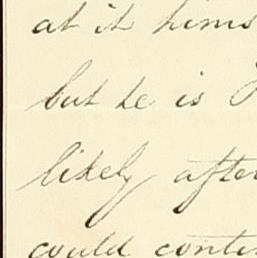 at it hims
but he is
likely after
could contin